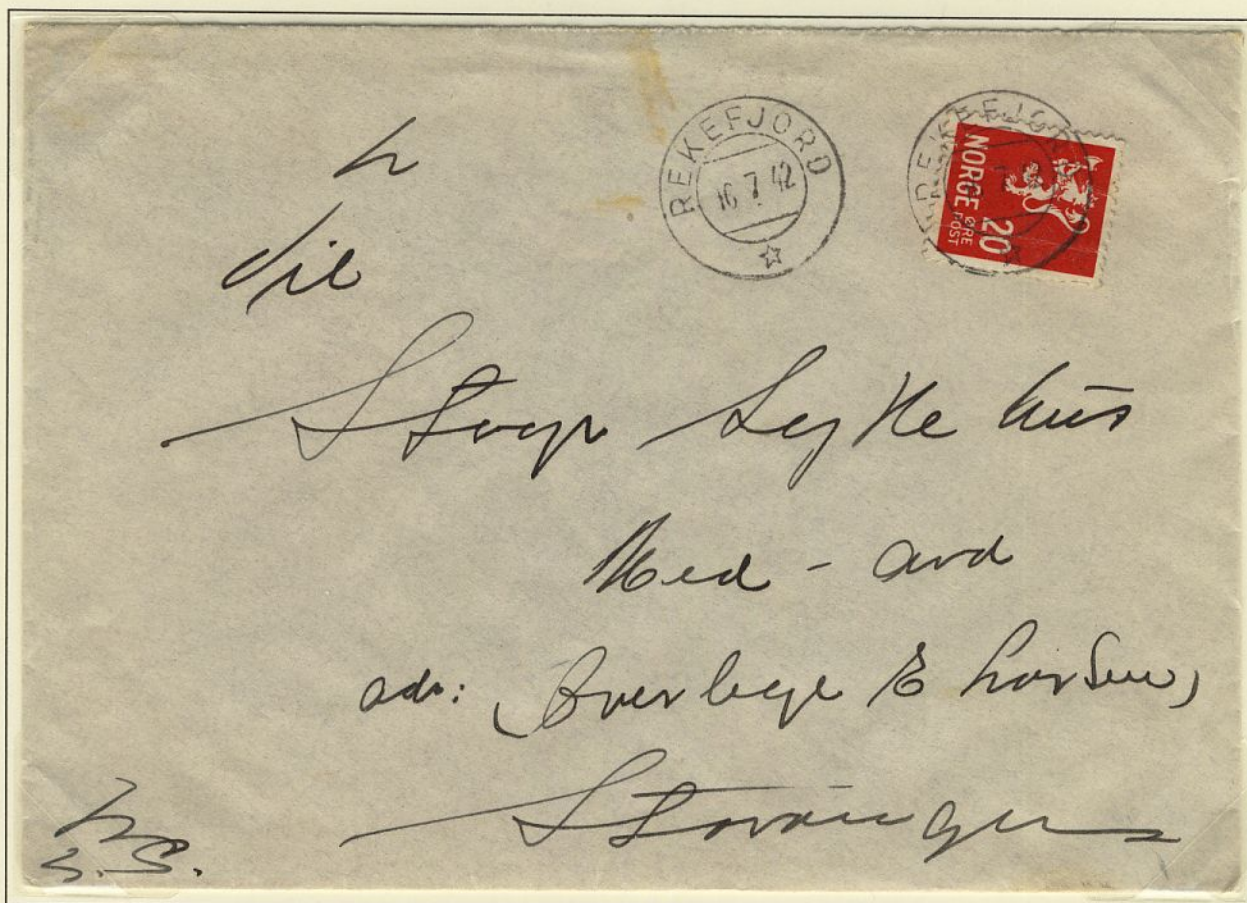 REKEFJORD
16.7.42
REKEFJORD
NORGE 20 ØRE POST
Til
Stvgr Sykehus
Med - avd
adr: (Overlege E Larsen)
Stavanger
S.S.